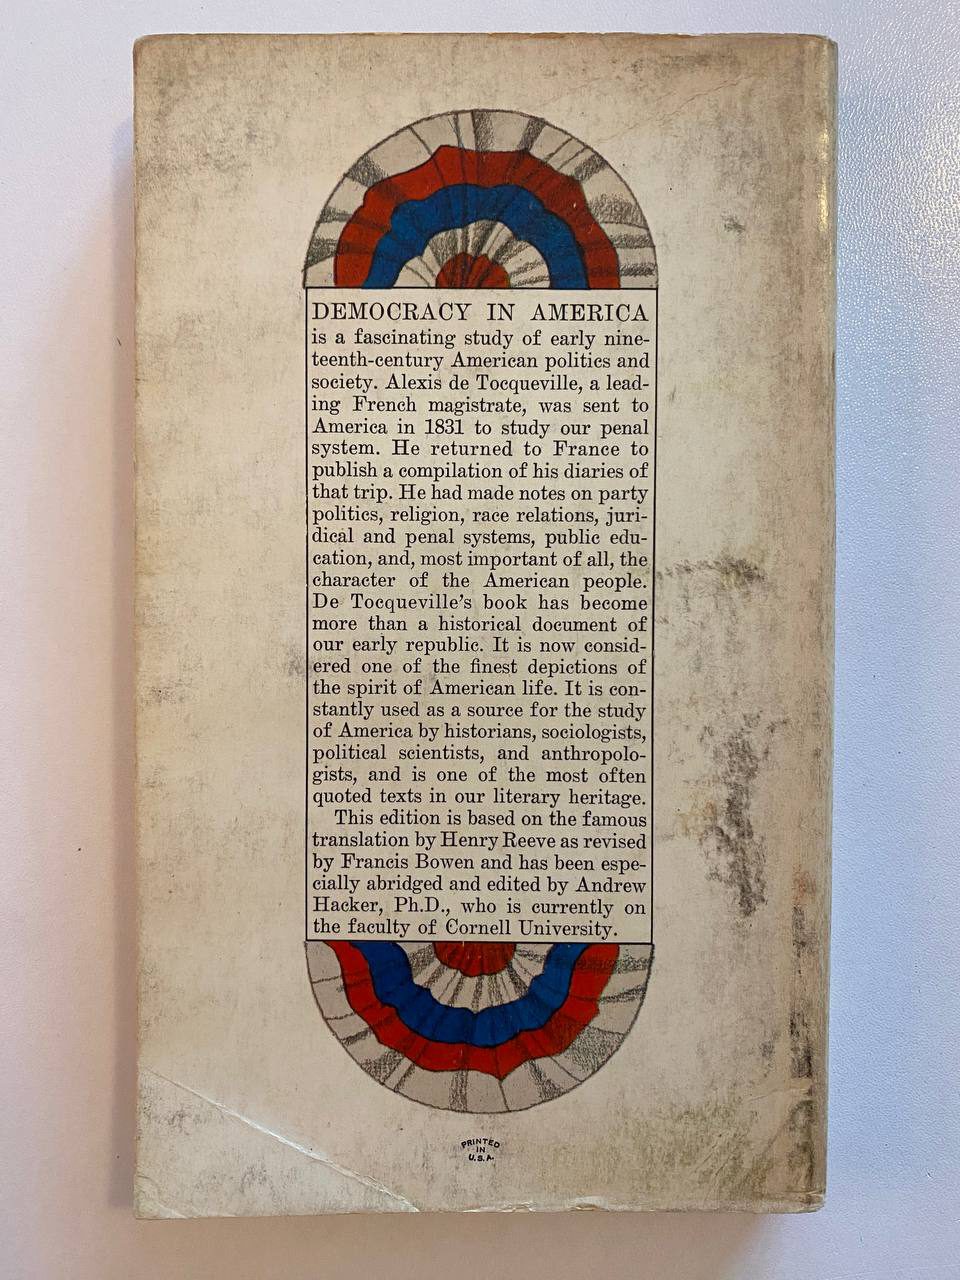 DEMOCRACY IN AMERICA
is a fascinating study of early nine-
teenth-century American politics and
society. Alexis de Tocqueville, a lead-
ing French magistrate, was sent to
America in 1831 to study our penal
system. He returned to France to
publish a compilation of his diaries of
that trip. He had made notes on party
politics, religion, race relations, juri-
dical and penal systems, public edu-
cation, and, most important of all, the
character of the American people.
De Tocqueville's book has become
more than a historical document of
our early republic. It is now consid-
ered one of the finest depictions of
the spirit of American life. It is con-
stantly used as a source for the study
of America by historians, sociologists,
political scientists, and anthropolo-
gists, and is one of the most often
quoted texts in our literary heritage.
This edition is based on the famous
translation by Henry Reeve as revised
by Francis Bowen and has been espe-
cially abridged and edited by Andrew
Hacker, Ph.D., who is currently on
the faculty of Cornell University.
PRINTED
IN
U.S.A.